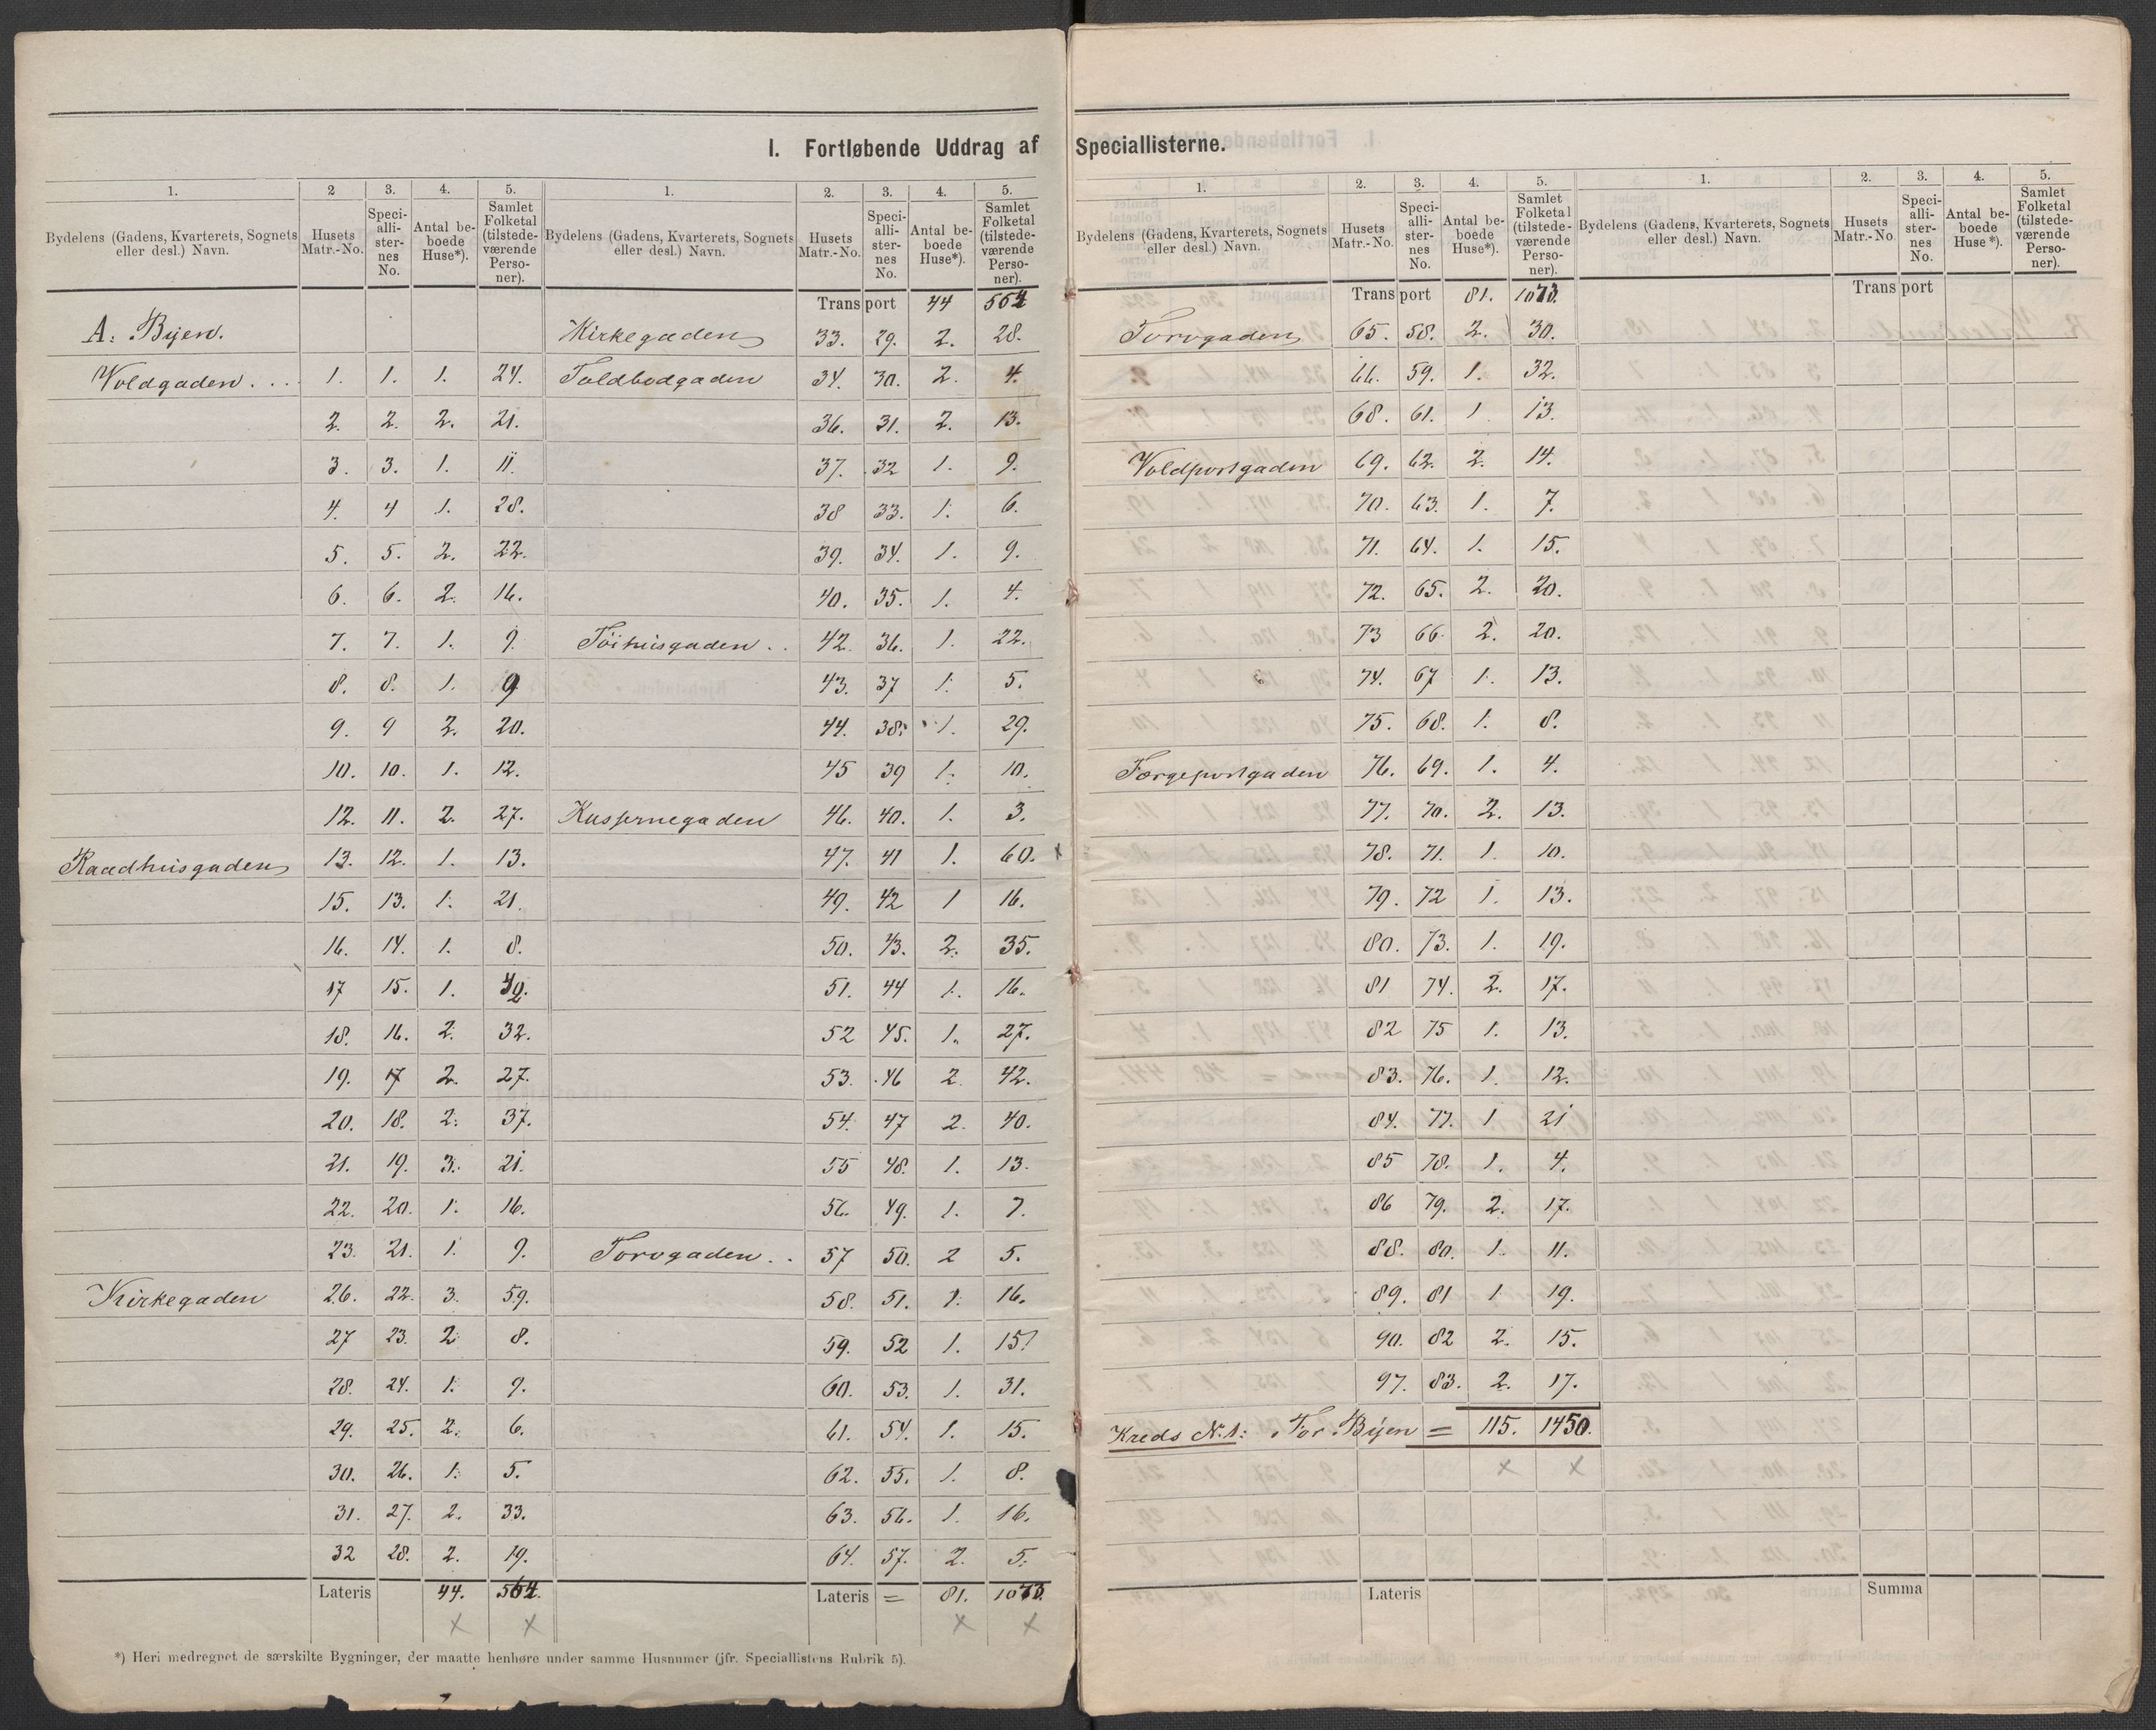 I. Fortløbende Uddrag af Speciallisterne.
1. 2 3. 4. 5.
Bydelens (Gadens, Kvarterets, Sognets eller desl.) Navn. Husets Matr.-No. Speci-alli-ster-nes No. Antal be-boede Huse*). Samlet Folketal (tilstede-værende Perso-ner).
A. Byen.
Voldgaden . . . . 1. 1. 1. 24.
2. 2. 2. 21.
3. 3. 1. 11.
4. 4 1. 28.
5. 5. 2. 22.
6. 6. 2. 16.
7. 7. 1. 9.
8. 8. 1. 9
9. 9 2. 20.
10. 10. 1. 12.
12. 11. 2. 27.
Raadhusgaden 13. 12. 1. 13.
15. 13. 1. 21.
16. 14. 1. 8.
17 15. 1.
18. 16. 2. 32.
19. 17 2. 27.
20. 18. 2. 37.
21. 19. 3. 21.
22. 20. 1. 16.
23. 21. 1. 9.
Kirkegaden 26. 22. 3. 59.
27 23. 2 8.
28. 24. 1. 9.
29. 25. 2. 6.
30. 26. 1. 5.
31. 27. 2. 33.
32 28. 2. 19.
Lateris 44. 564.
x x
1. 2. 3. 4. 5.
Bydelens (Gadens, Kvarterets, Sognets eller desl.) Navn. Husets Matr.-No. Speci-alli-ster-nes No. Antal be-boede Huse*). Samlet Folketal (tilstede-værende Perso-ner).
Transport 44 564
Kirkegaden 33. 29. 2. 28.
Toldbodgaden 34. 30. 2. 4.
36. 31. 2. 13.
37. 32 1. 9.
38 33. 1. 6.
39. 34. 1. 9.
40. 35. 1. 4.
Töihusgaden . . 42. 36. 1. 22.
43. 37 1. 5.
44. 38. 1. 29.
45 39 1. 10.
Kasernegaden 46. 40. 1. 3.
47. 41 1. 60. x
49. 42 1 16.
50. 43. 2. 35.
51. 44 1. 16.
52 45. 1. 27.
53. 46 2. 42.
54. 47 2. 40.
55 48. 1. 13.
56. 49. 1. 7.
Torvgaden . . 57 50. 2 5.
58. 51. 1. 16.
59. 52 1. 15.
60. 53. 1. 31.
61. 54. 1. 15.
62. 55. 1. 8.
63. 56. 1. 16.
64. 57. 2. 5.
Lateris = 81. 1073.
x x
*) Heri medregnet de særskilte Bygninger, der maatte henhøre under samme Husnumer (jfr. Speciallistens Rubrik 5).
1. 2. 3. 4. 5.
Bydelens (Gadens, Kvarterets, Sognets eller desl.) Navn. Husets Matr.-No. Speci-alli-ster-nes No. Antal be-boede Huse*). Samlet Folketal (tilstede-værende Perso-ner).
Transport 81. 1073.
Torvgaden 65. 58. 2. 30.
66. 59. 1. 32.
68. 61. 1 13.
Voldportgaden 69. 62. 2. 14.
70. 63. 1. 7.
71. 64. 1. 15.
72. 65. 2. 20.
73 66. 2. 20.
74. 67 1. 13.
75. 68. 1. 8.
Færgeportgaden 76. 69. 1. 4.
77. 70. 2. 13.
78. 71. 1. 10.
79. 72 1. 13.
80. 73. 1. 19.
81 74. 2. 17.
82 75 1. 13.
83. 76. 1. 12.
84. 77. 1 21
85 78. 1. 4.
86 79. 2. 17.
88. 80. 1. 11.
89. 81 1. 19.
90. 82 2. 15.
97. 83. 2. 17.
Kreds N. 1: For Byen = 115. 1450.
x x
Lateris
1. 2. 3. 4. 5.
Bydelens (Gadens, Kvarterets, Sognets eller desl.) Navn. Husets Matr.-No. Speci-alli-ster-nes No. Antal be-boede Huse*). Samlet Folketal (tilstede-værende Perso-ner).
Transport
Summa